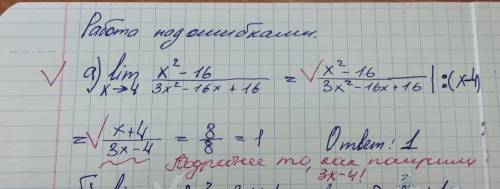 Работа над ошибками.
а) lim x→4 (x²-16)/(3x²-16x+16) = (x²-16)/(3x²-16x+16) | :(x-4)
= (x+4)/(3x-4) = 8/8 = 1 Ответ: 1
Подробнее то, как получили
3x-4!